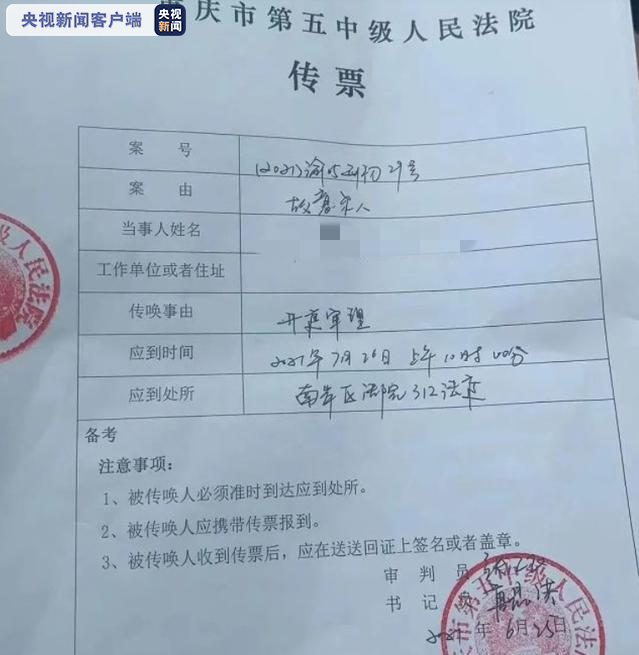 央视新闻客户端
央视
新闻
庆市第五中级人民法院
传票
案 号 (2021)渝05刑初29号
案 由 故意杀人
当事人姓名
工作单位或者住址
传唤事由 开庭审理
应到时间 2021年7月26日 上午10时00分
应到处所 南岸区法院312法庭
备考
注意事项：
1、被传唤人必须准时到达应到处所。
2、被传唤人应携带传票报到。
3、被传唤人收到传票后，应在送送回证上签名或者盖章。
审 判 员
书 记 员
2021年6月25日
人民法院
市第五中级人民法